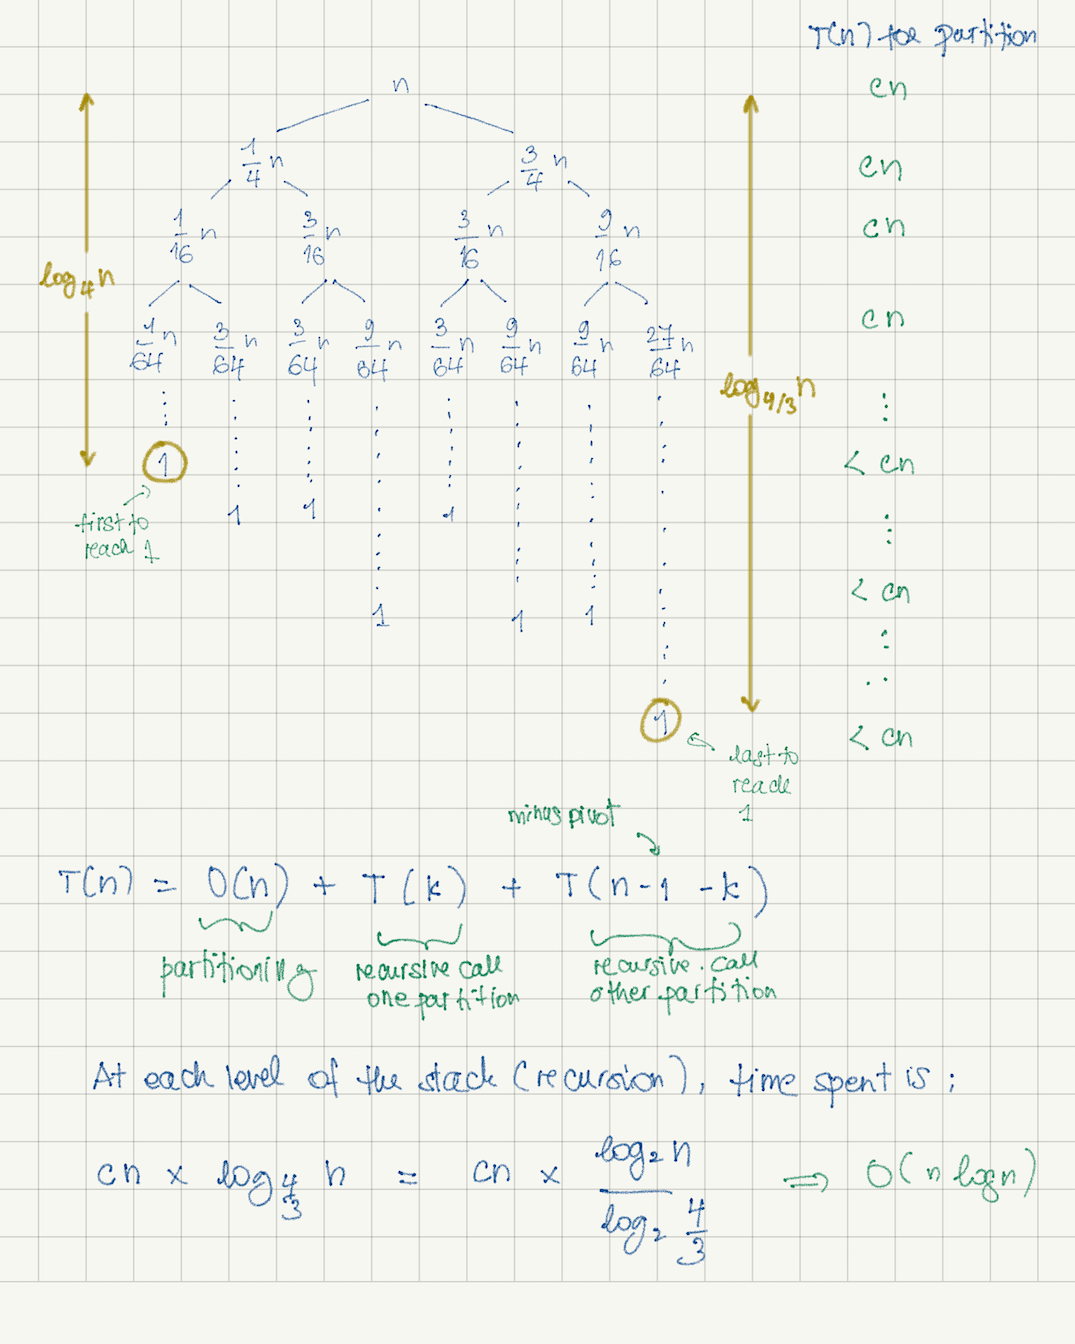 T(n) for partition
n
cn
1/4 n 3/4 n
cn
1/16 n 3/16 n 3/16 n 9/16 n
cn
log₄n
1/64 n 3/64 n 3/64 n 9/64 n 3/64 n 9/64 n 9/64 n 27/64 n
cn
log₄/₃n
1
< cn
first to
reach 1
1 1 1
< cn
1 1 1
1
< cn
last to
reach
1
minus pivot
T(n) = O(n) + T(k) + T(n-1-k)
partitioning
recursive call
one partition
recursive call
other partition
At each level of the stack (recursion), time spent is :
cn × log 4/3 n = cn × log₂n / log₂ 4/3 ⟹ O(n log n)